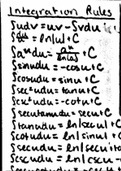 Integration Rules
∫udv=uv-∫vdu
∫du/u=ln|u|+C
∫aᵘdu=aᵘ/ln|a|+C
∫sinudu=-cosu+C
∫cosudu=sinu+C
∫sec²udu=tanu+C
∫csc²udu=-cotu+C
∫secutanudu=secu+C
∫tanudu=-ln|cosu|
∫cotudu=ln|sinu|+C
∫secudu=ln|secu+
∫cscudu=ln|cscu-